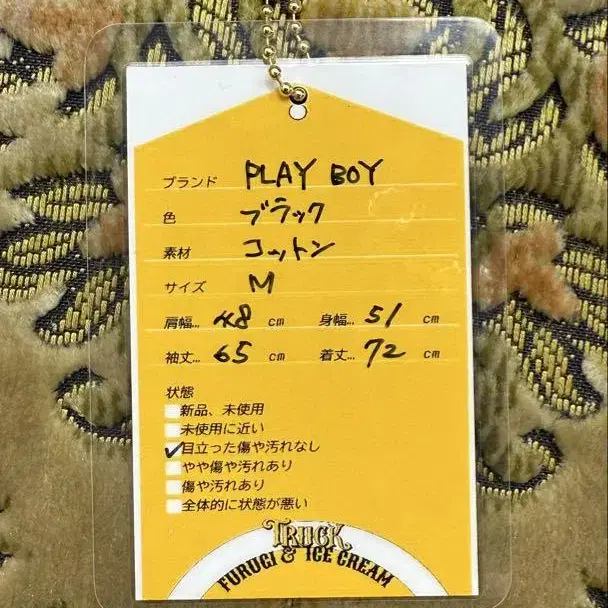 ブランド PLAY BOY
色 ブラック
素材 コットン
サイズ M
肩幅... 48 cm 身幅... 51 cm
袖丈... 65 cm 着丈... 72 cm
状態
新品、未使用
未使用に近い
✓目立った傷や汚れなし
やや傷や汚れあり
傷や汚れあり
全体的に状態が悪い
TRUCK
FURUGI & ICE CREAM